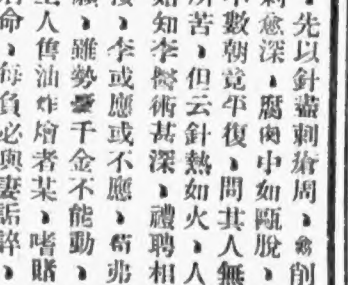 、先以針盡刺瘡周、會削
刺愈深、腐肉中如甌脫、
不數朝竟平復、問其人無
所苦、但云針熱如火、人
如知李醫術甚深、禮聘相
接、李或應或不應、苟弗
願、雖勢臺千金不能動、
人售油炸燴者某、嗜賭
命、每負必與妻詬誶、